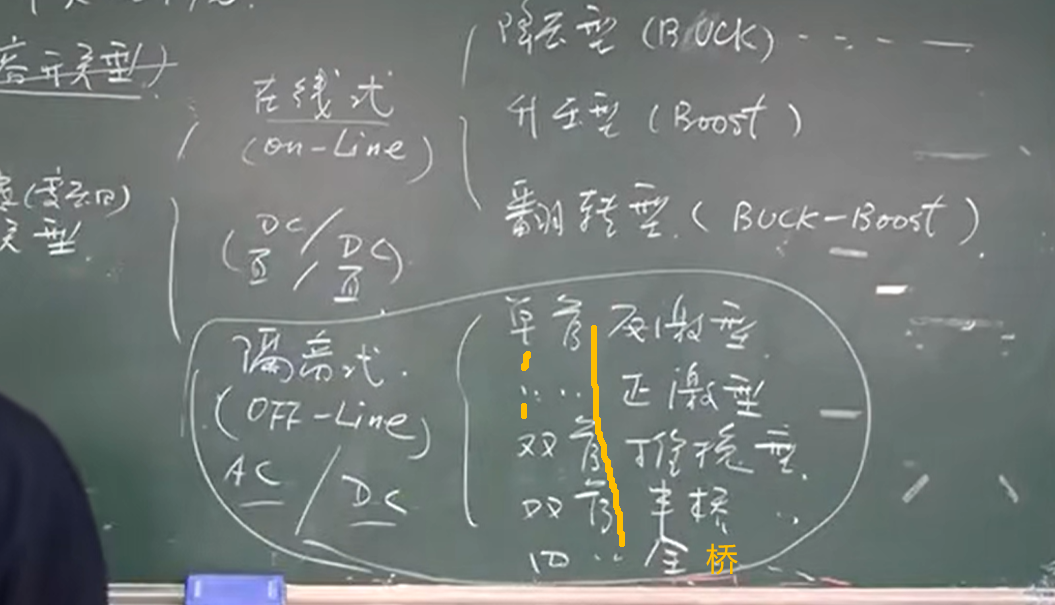 降压型 (BUCK) - - - —
升压型 (Boost)
翻转型 (BUCK-Boost)
在线式
(on-Line)
(DC/DC)
直/直
型
隔离式.
(OFF-Line)
AC/DC
单管 反激型
:: ·· 正激型
双管 推挽型
双管 半桥
四 ·· 全桥